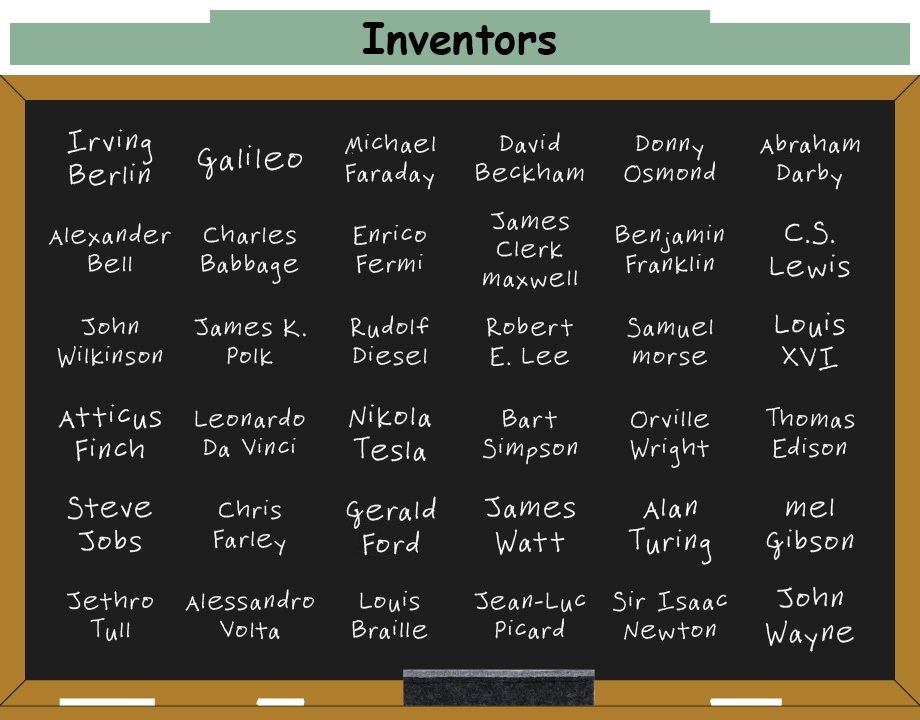 Inventors
Irving
Berlin
Galileo
Michael
Faraday
David
Beckham
Donny
Osmond
Abraham
Darby
Alexander
Bell
Charles
Babbage
Enrico
Fermi
James
Clerk
maxwell
Benjamin
Franklin
C.S.
Lewis
John
Wilkinson
James K.
Polk
Rudolf
Diesel
Robert
E. Lee
Samuel
morse
Louis
XVI
Atticus
Finch
Leonardo
Da Vinci
Nikola
Tesla
Bart
Simpson
Orville
Wright
Thomas
Edison
Steve
Jobs
Chris
Farley
Gerald
Ford
James
Watt
Alan
Turing
mel
Gibson
Jethro
Tull
Alessandro
Volta
Louis
Braille
Jean-Luc
Picard
Sir Isaac
Newton
John
Wayne